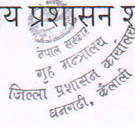 य प्रशासन श
नेपाल सरकार
गृह मन्त्रालय
जिल्ला प्रशासन कार्यालय
धनगढी, कैलाली